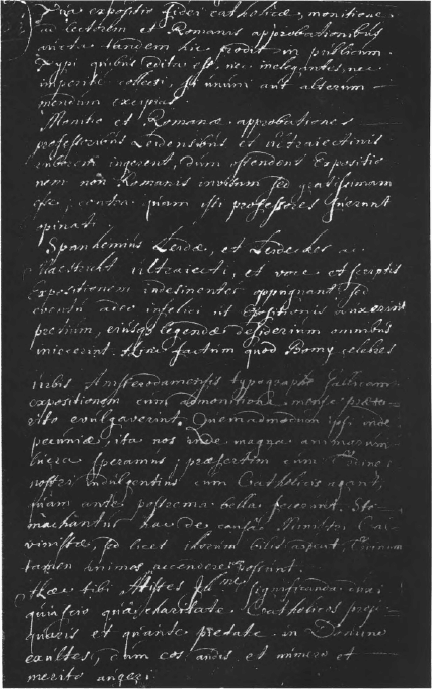 Pia expositio fidei catholicæ, monitione
ad lectorem et Romanis approbationibus
aucta tandem hic prodit in publicum.
Typi quibus edita est, nec inelegantes, nec
impensè collecti si unum aut alterum
mendum excipias.
Monitio et Romanæ approbationes
professoribus Leidensibus et ultraiectinis
ruborem ingerent, dum ostendent Expositio
nem non Romanis invisam sed gratissimam
esse, contra quam isti professores fuerunt
opinati.
Spanhemius Leidæ, et
Maestricht ultraiecti, et voce et scriptis
Expositionem indesinentes oppugnant, sed
eventu adeo infelici ut Expositionis auxerint
pretium, eiusq legendæ desiderium omnibus
iniecerint. Hinc factum quod Bomy celebres
urbis Amsterodamensis typographi Gallicam
expositionem cum admonitione mense præte-
rito evulgaverint. Quemadmodum ipsi inde
pecuniæ, ita nos inde magna animarum
lucra speramus, præsertim cum
nostri indulgentius cum Catholicis agant,
quam ante postrema bella fecerunt. Sto-
machantur hac de causâ Ministri Cal-
vinistæ, sed licet illorum bilis
tamen animos accendere possunt.
Hæc tibi Antistes Illme significanda duxi
quia scio quâ charitate Catholicos prose-
quaris et quantè in Domino
exultes, cùm eos audis et numero et
merito augeri.